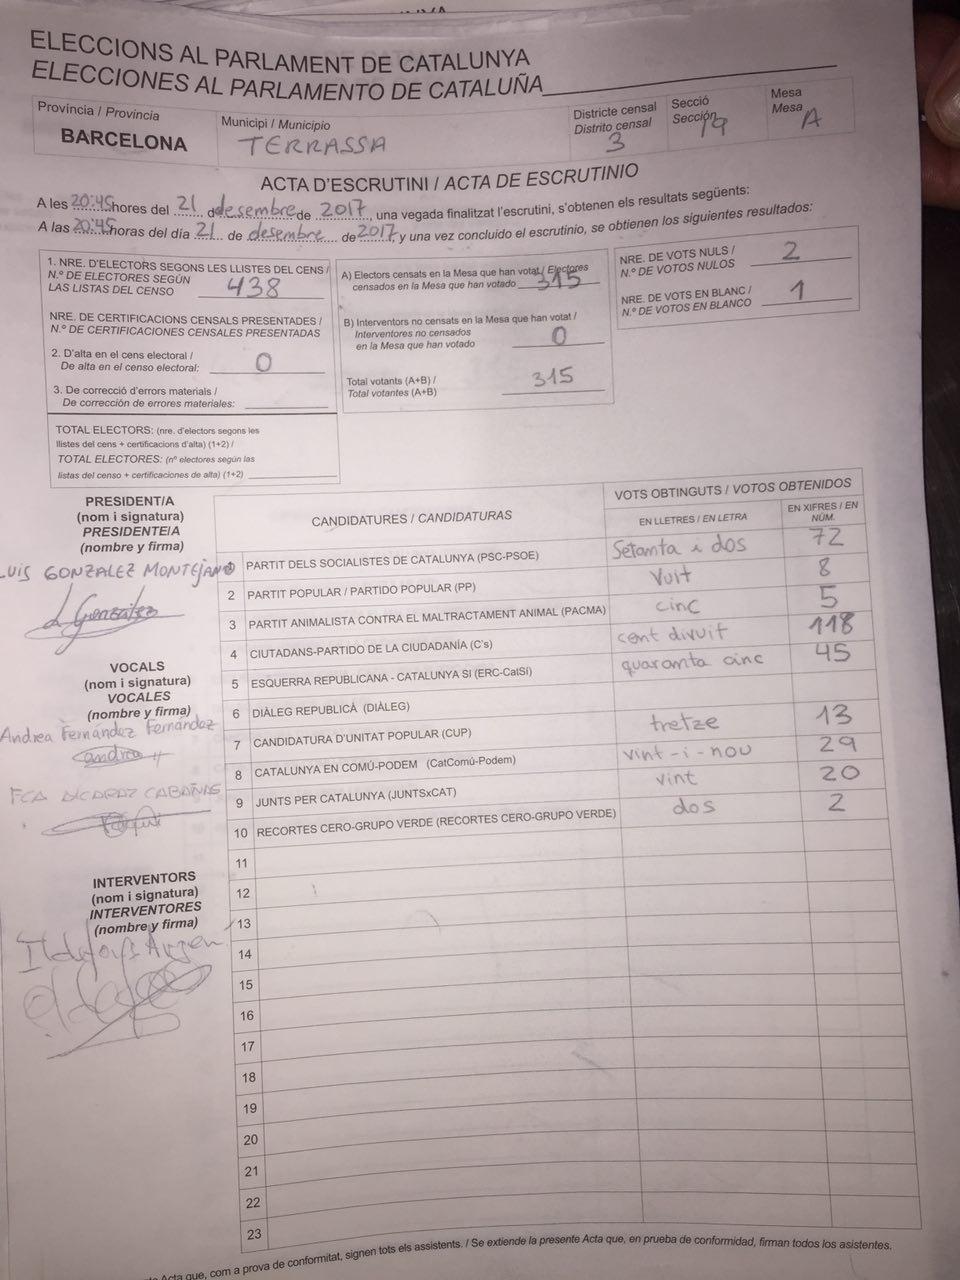 ELECCIONS AL PARLAMENT DE CATALUNYA
ELECCIONES AL PARLAMENTO DE CATALUÑA
Província / Provincia
BARCELONA
Municipi / Municipio
TERRASSA
Districte censal
Distrito censal
3
Secció
Sección
19
Mesa
Mesa
A
ACTA D'ESCRUTINI / ACTA DE ESCRUTINIO
A les 20:45 hores del 21 d desembre de 2017, una vegada finalitzat l'escrutini, s'obtenen els resultats següents:
A las 20:45 horas del día 21 de desembre de 2017 y una vez concluido el escrutinio, se obtienen los siguientes resultados:
1. NRE. D'ELECTORS SEGONS LES LLISTES DEL CENS /
N.º DE ELECTORES SEGÚN
LAS LISTAS DEL CENSO 438
NRE. DE CERTIFICACIONS CENSALS PRESENTADES /
N.º DE CERTIFICACIONES CENSALES PRESENTADAS
2. D'alta en el cens electoral /
De alta en el censo electoral: 0
3. De correcció d'errors materials /
De corrección de errores materiales:
TOTAL ELECTORS: (nre. d'electors segons les
llistes del cens + certificacions d'alta) (1+2) /
TOTAL ELECTORES: (nº electores según las
listas del censo + certificaciones de alta) (1+2)
A) Electors censats en la Mesa que han votat / Electores
censados en la Mesa que han votado 315
B) Interventors no censats en la Mesa que han votat /
Interventores no censados
en la Mesa que han votado 0
Total votants (A+B) /
Total votantes (A+B) 315
NRE. DE VOTS NULS /
N.º DE VOTOS NULOS 2
NRE. DE VOTS EN BLANC /
N.º DE VOTOS EN BLANCO 1
PRESIDENT/A
(nom i signatura)
PRESIDENTE/A
(nombre y firma)
LUIS GONZALEZ MONTEJANO
L González
VOCALS
(nom i signatura)
VOCALES
(nombre y firma)
Andrea Fernández Fernández
andrea
FCA ALCARAZ CABAÑAS
INTERVENTORS
(nom i signatura)
INTERVENTORES
(nombre y firma)
CANDIDATURES / CANDIDATURAS
VOTS OBTINGUTS / VOTOS OBTENIDOS
EN LLETRES / EN LETRA
EN XIFRES / EN NÚM.
1 PARTIT DELS SOCIALISTES DE CATALUNYA (PSC-PSOE) Setanta i dos 72
2 PARTIT POPULAR / PARTIDO POPULAR (PP) Vuit 8
3 PARTIT ANIMALISTA CONTRA EL MALTRACTAMENT ANIMAL (PACMA) cinc 5
4 CIUTADANS-PARTIDO DE LA CIUDADANÍA (C's) cent divuit 118
5 ESQUERRA REPUBLICANA - CATALUNYA SI (ERC-CatSí) quaranta cinc 45
6 DIÀLEG REPUBLICÀ (DIÀLEG)
7 CANDIDATURA D'UNITAT POPULAR (CUP) tretze 13
8 CATALUNYA EN COMÚ-PODEM (CatComú-Podem) vint-i-nou 29
9 JUNTS PER CATALUNYA (JUNTSxCAT) vint 20
10 RECORTES CERO-GRUPO VERDE (RECORTES CERO-GRUPO VERDE) dos 2
11
12
13
14
15
16
17
18
19
20
21
22
23
Acta que, com a prova de conformitat, signen tots els assistents. / Se extiende la presente Acta que, en prueba de conformidad, firman todos los asistentes.